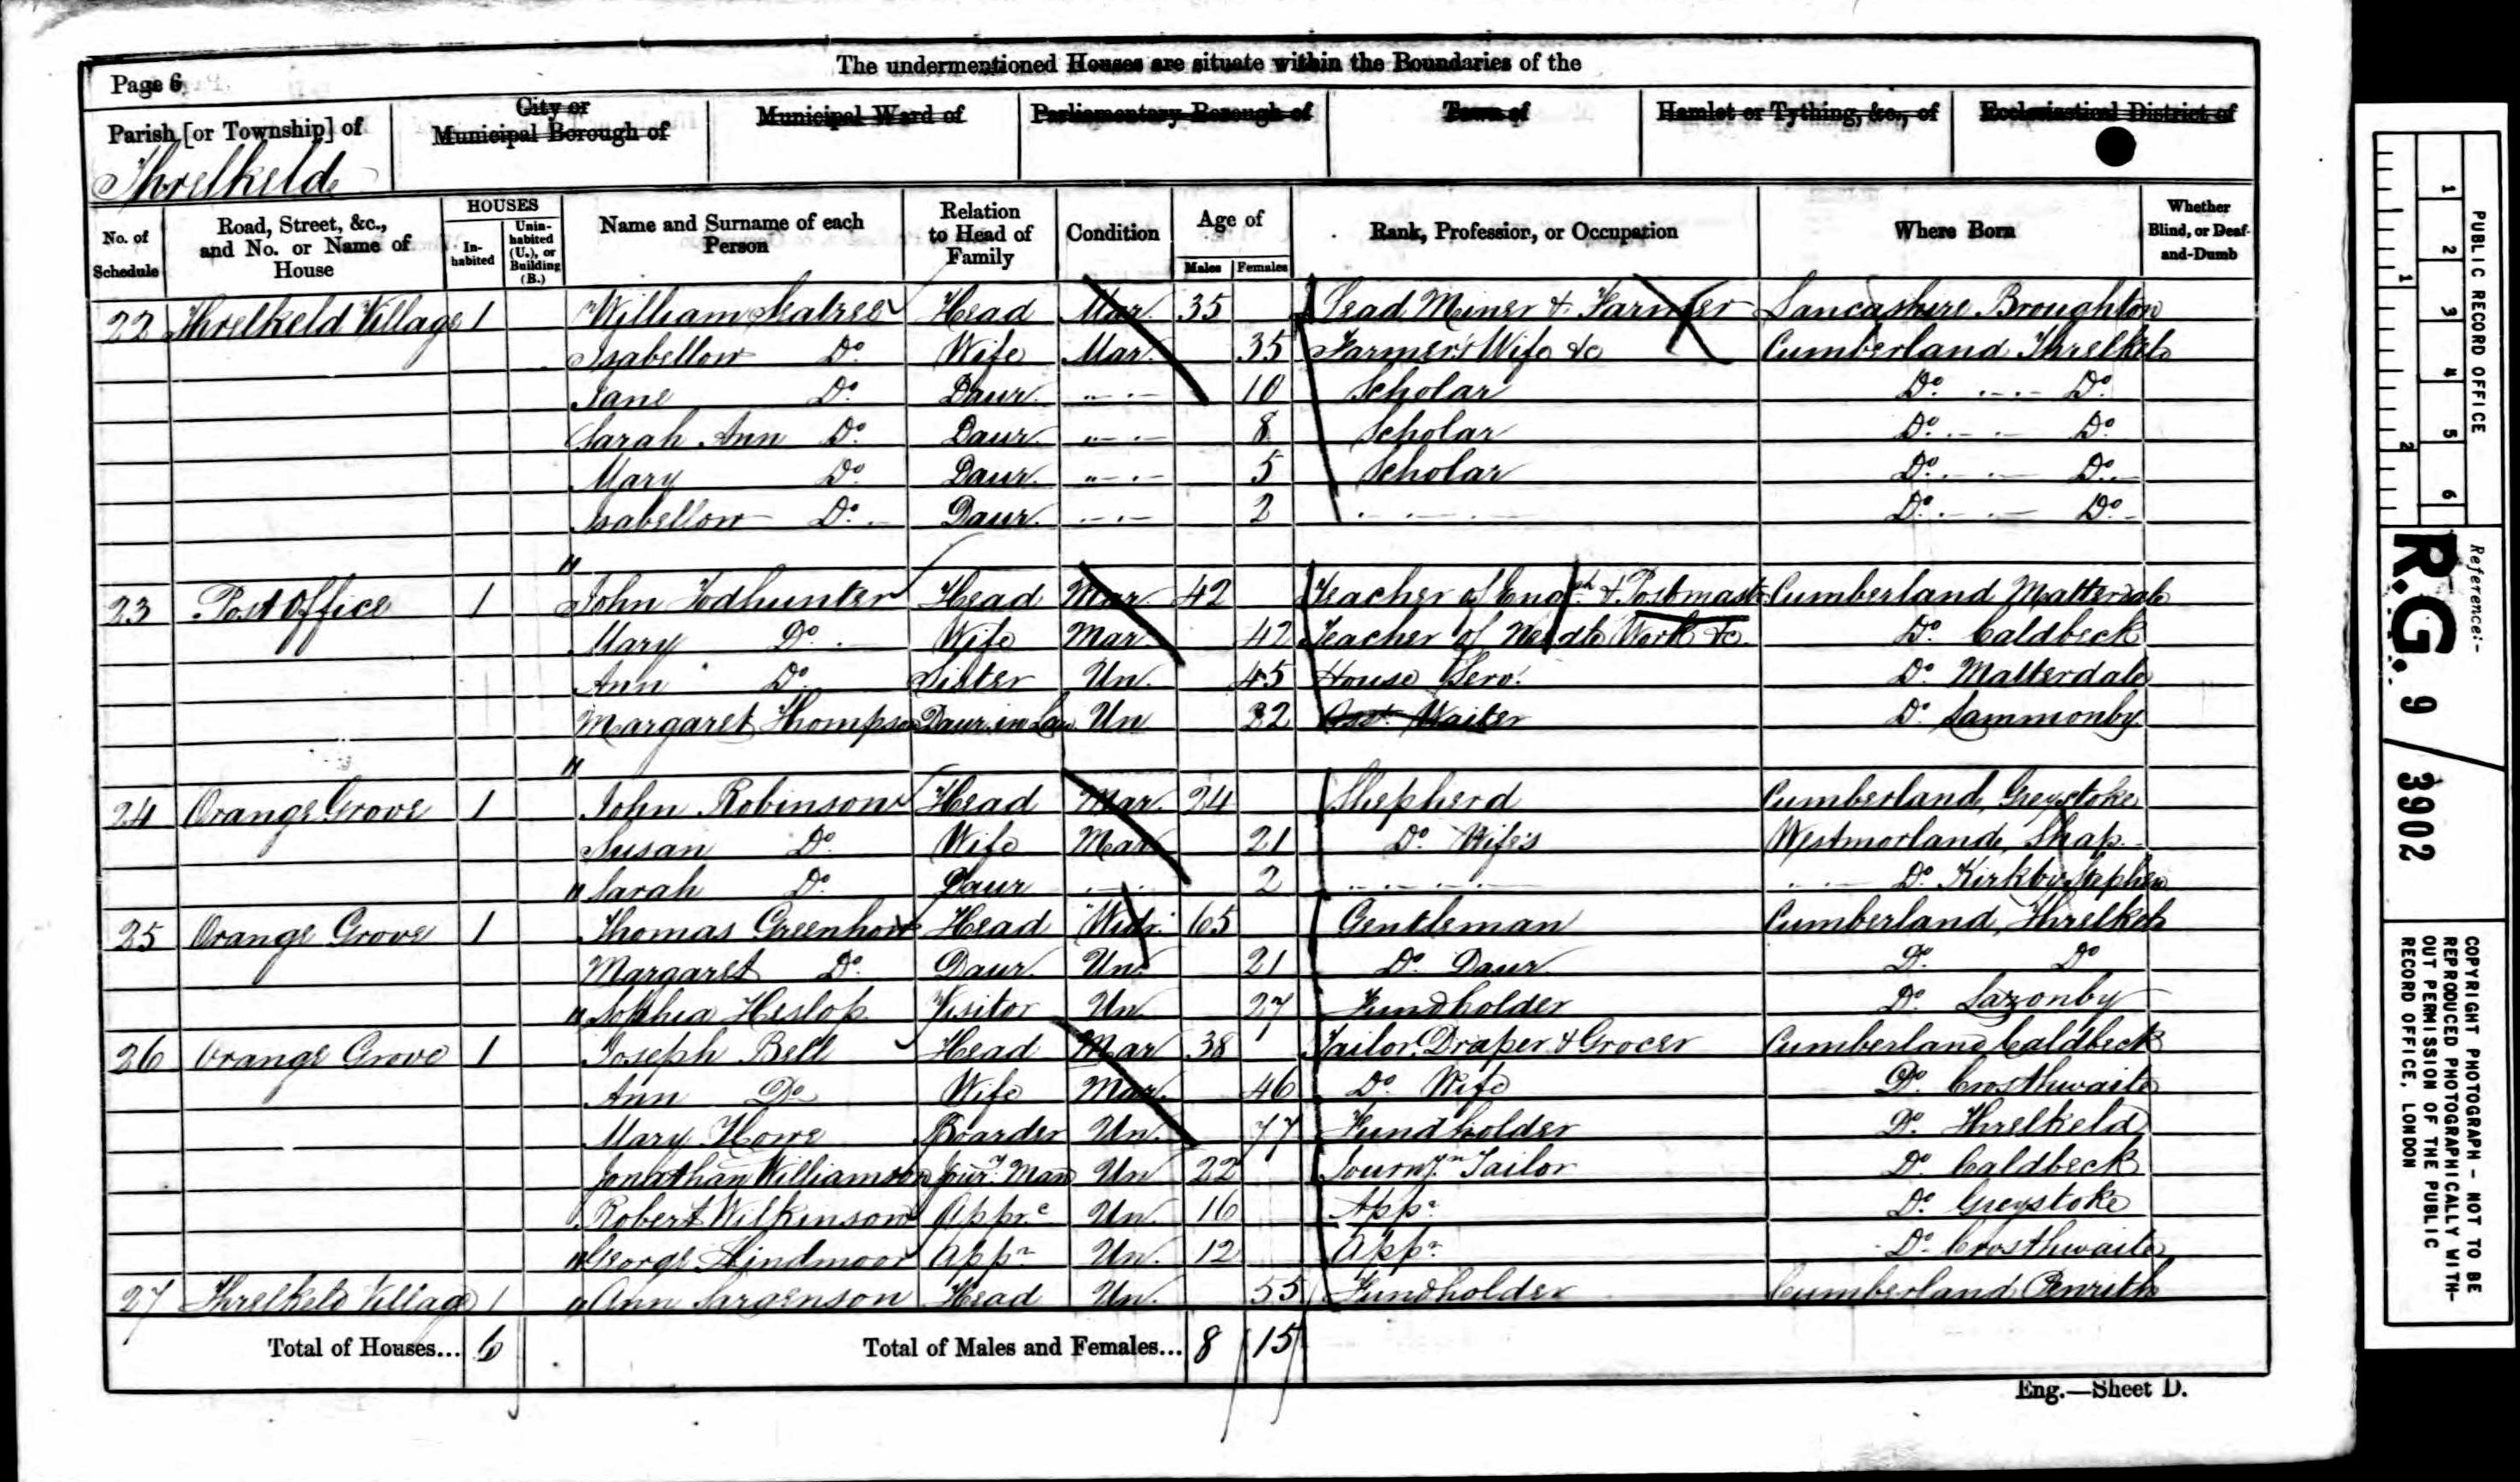 The undermentioned Houses are situate within the Boundaries of the
Page 6
Parish [or Township] of
Threlkeld
City or Municipal Borough of
Municipal Ward of
Parliamentary Borough of
Town of
Hamlet or Tything, &c., of
Ecclesiastical District of
No. of Schedule
Road, Street, &c., and No. or Name of House
HOUSES
Inhabited
Uninhabited (U.), or Building (B.)
Name and Surname of each Person
Relation to Head of Family
Condition
Age of
Males
Females
Rank, Profession, or Occupation
Where Born
Whether Blind, or Deaf-and-Dumb
22 Threlkeld Village 1 William Head Mar. 35 Lead Miner & Farmer Lancashire Broughton
Isabellow Do. Wife Mar. 35 Farmer's Wife &c Cumberland Threlkeld
Jane Do. Daur. 10 Scholar Do. Do.
Sarah Ann Do. Daur. 8 Scholar Do. Do.
Mary Do. Daur. 5 Scholar Do. Do.
Isabellow Do. Daur. 2 Do. Do.
23 Post Office 1 John Todhunter Head Mar. 42 Teacher of & Postmaster Cumberland Matterdale
Mary Do. Wife Mar. 42 Teacher of Needle Work &c. Do. Caldbeck
Ann Do. Sister Un. 45 House Serv. Do. Matterdale
Margaret Thompson Daur. in Law Un 32 Do. Lammonby
24 Orange Grove 1 John Robinson Head Mar. 24 Shepherd Cumberland, Greystoke
Susan Do. Wife Mar. 21 Do. Wife's Westmorland, Shap.
Sarah Do. Daur 2 Do. Kirkby Stephen
25 Orange Grove 1 Thomas Greenhow Head Widr. 65 Gentleman Cumberland, Threlkeld
Margaret Do. Daur. Un. 21 Do. Daur. Do. Do
Sophia Heslop Visitor Un 27 Fundholder Do. Lazonby
26 Orange Grove 1 Joseph Bell Head Mar 38 Tailor, Draper & Grocer Cumberland Caldbeck
Ann Do. Wife Mar. 46 Do. Wife Do. Crosthwaite
Mary Howe Boarder Un. 77 Fundholder Do. Threlkeld
Jonathan Williamson Jour. Man Un 22 Journyn Tailor Do. Caldbeck
Robert Wilkinson Appre Un. 16 Appr Do. Greystoke
George Hindmoor Appr Un. 12 Appr Do. Crosthwaite
27 Threlkeld Village 1 Ann Sargenson Head Un. 55 Fundholder Cumberland Penrith
Total of Houses... 6
Total of Males and Females... 8 15
Eng.—Sheet D.
PUBLIC RECORD OFFICE
1 2 3 4 5 6
1 2
Reference:-
R.G. 9 / 3902
COPYRIGHT PHOTOGRAPH - NOT TO BE
REPRODUCED PHOTOGRAPHICALLY WITH-
OUT PERMISSION OF THE PUBLIC
RECORD OFFICE, LONDON